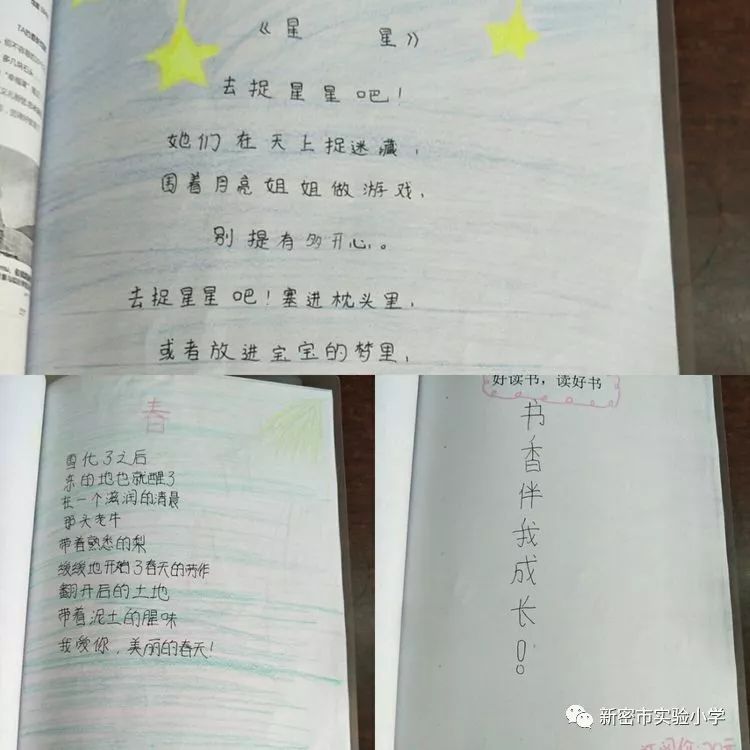 《星 星》
去捉星星吧!
她们在天上捉迷藏,
围着月亮姐姐做游戏,
别提有多开心。
去捉星星吧!塞进枕头里,
或者放进宝宝的梦里,
春
雪化了之后
东的地也就醒了
在一个滋润的清晨
那头老牛
带着熟悉的梨
缓缓地开始了春天的劳作
翻开后的土地
带着泥土的腥味
我爱你,美丽的春天!
好读书,读好书
书香伴我成长!
新密市实验小学